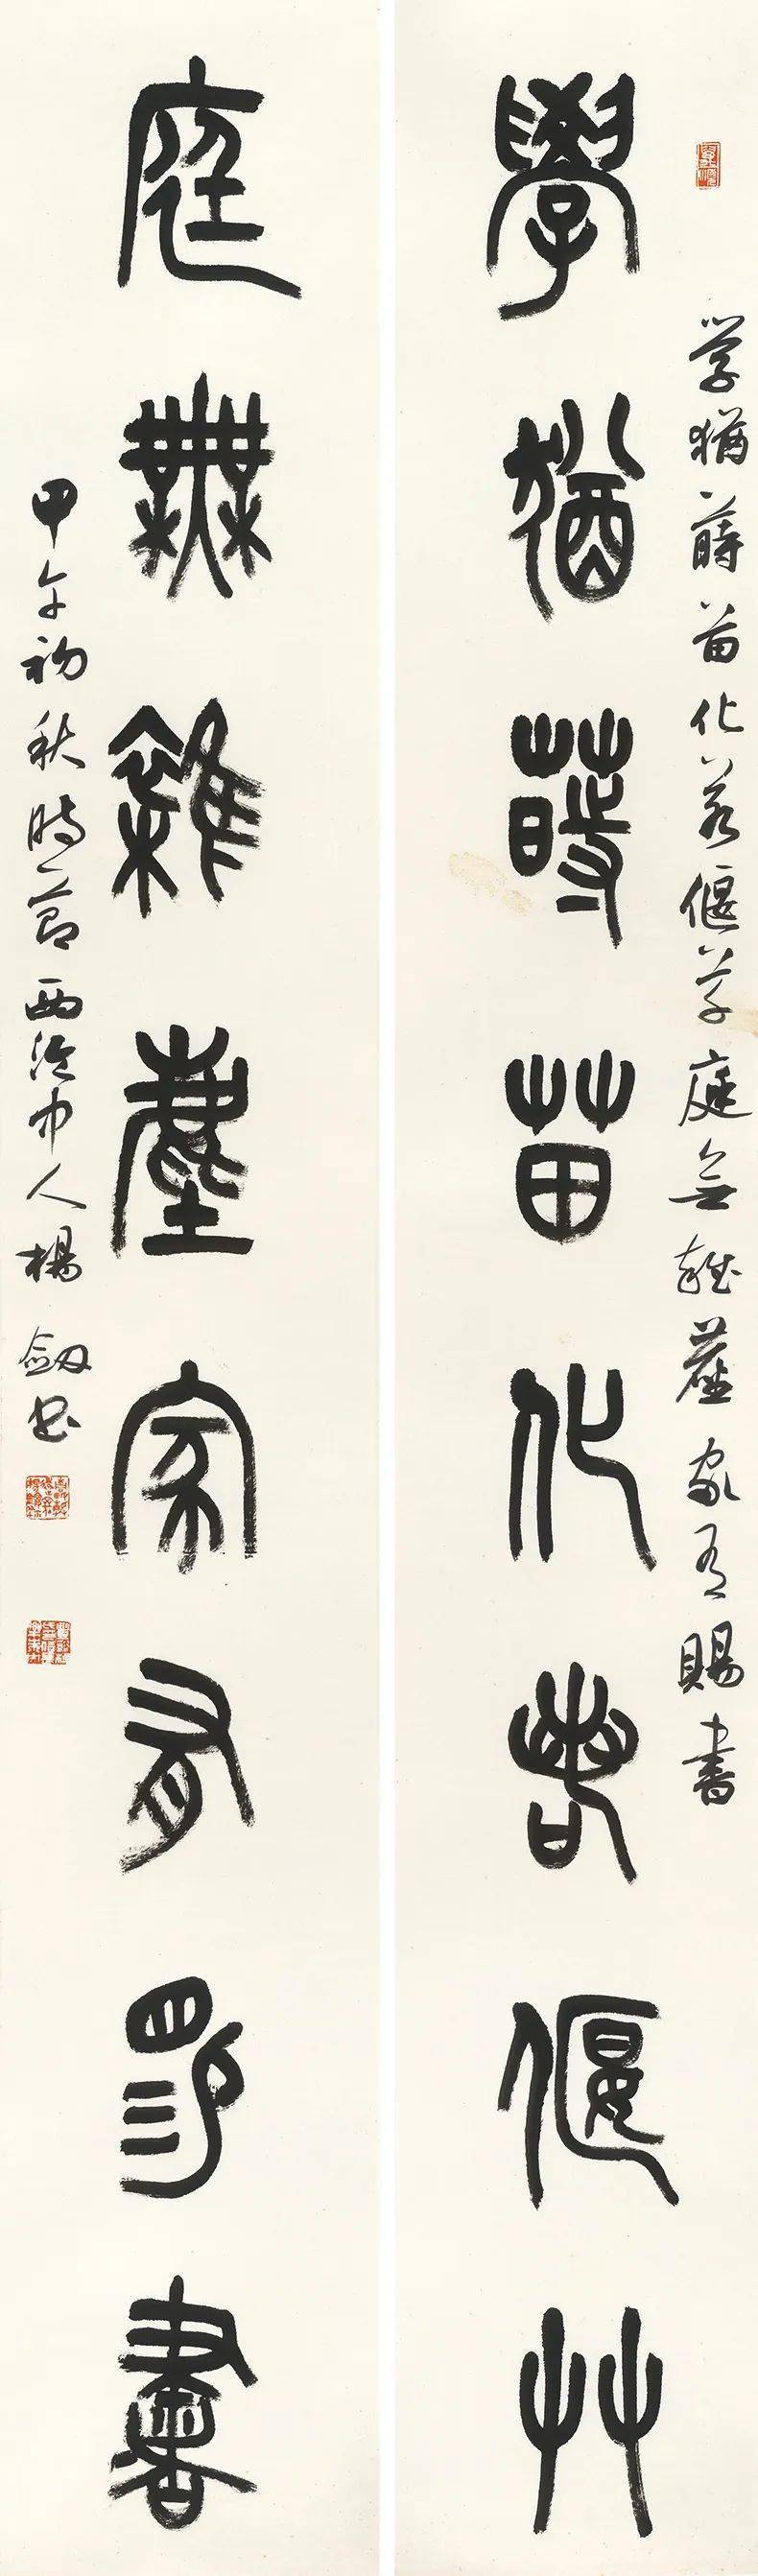 學猶蒔苗化若偃艸
学猶蒔苗化若偃草庭無雜塵家有賜書
庭無雜塵家有賜書
甲午初秋時節西泠中人楊劍书